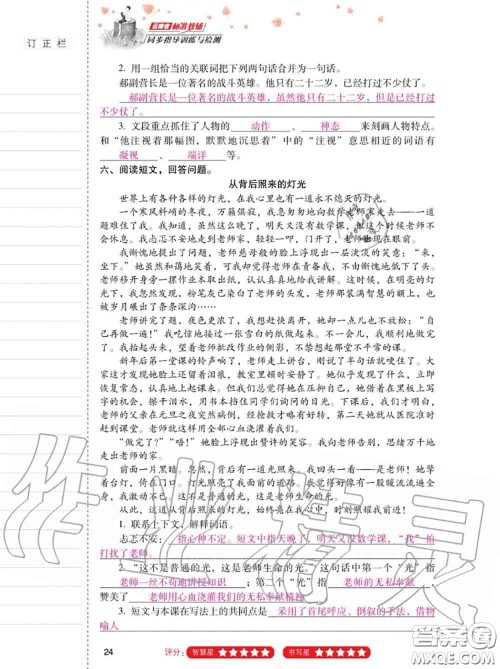 订正栏
云南省标准教辅
同步指导训练与检测
2. 用一组恰当的关联词把下列两句话合并为一句话。
郝副营长是一位著名的战斗英雄。他只有二十二岁，已经打过不少仗了。
郝副营长是一位著名的战斗英雄，虽然他只有二十二岁，但是已经打过
不少仗了。
3. 文段重点抓住了人物的 动作 、 神态 来刻画人物特点。
和“他注视着那幅图，默默地沉思着”中的“注视”意思相近的词语有
凝视 、 端详 等。
六、阅读短文，回答问题。
从背后照来的灯光
世界上有各种各样的灯光，在我心里也有一道永不熄灭的灯光。
一个寒风料峭的冬夜，万籁俱寂，我急匆匆地向数学老师家走去——一道
题难住了我。我知道，虽然这么晚了，明天又没有数学课，但这个时候老师不
会休息。我忐忑不安地走到老师家，轻轻一叩，门开了，老师出现在眼前。
我惭愧地提出了问题，慈易般的脸上浮现出一层淡淡的笑意：“来，
坐下。”她虽然和蔼地笑着，可我却觉得老师是在责备我，不由惭愧地低下了头。
老师移开身旁一摞作业本取出纸，认认真真地给我讲解。这时，在明亮的灯
光下，我忽然发现，粉笔灰已染白了老师的双鬓，老师那装满智慧的额上，也
被岁月碾出了条条深沟……
老师讲完了题，夜色更浓了，我想赶快离开，她却一点儿也不放松：“自
己再做一遍！”我吃惊地接过一张雪白的纸做起来。不一会儿，我顺利地做完
了。我抬起头来，望着老师批改作业的侧影，不禁联想起那堂不平常的课。
新年后第一堂课的铃声响了，老师走上讲台，刚说了半句话就哽住了。大
家这才发现她脸上还留着泪痕，教室里顿时安静了。她似乎发现了什么，立即
恢复常态，认真地上起课来。但我们总觉得她在压抑自己，她借着在黑板上写
字的机会擦干泪水，用书本挡住同学们询问的目光。下课后，我们才明白，老
师的父亲在元旦之夜突然病倒，经抢救才略有好转，第二天她就从医院准时
赶到课堂。老师就这样用全部心血浇灌着我们。
“做完了？”“嗯！”她脸上浮现出赞许的笑容。我向老师告别，思绪万千地
走出老师家。
前面一片黑暗。忽然，背后有一道光照来，我回头一看——是老师，她擎
着台灯，在门口为我照亮。灯光照亮了我前进的路，我觉得有一股暖流流遍全
身。灯光陪伴在我身边，仿佛永远照耀着我前进！
从此，这道从背后照来的灯光，永远闪烁在我心中。
1. 联系上下文，解释词语。
忐忑不安： 指心神不定。短文中指天晚了，明天又很数学课，“我”怕
打扰了老师。
2. “这不是普通的光，这是老师生命的光。”这句话中，第一个“光”指
老师一丝不苟地讲授知识 ；第二个“光”指 老师的无私奉献 ，
赞美了 老师用心血浇灌我们的无私奉献精神 。
3. 短文与本课在写法上的共同点是 采用了首尾呼应、倒叙的手法，借物
喻人
24
评分：
智慧星
书写星
作业精灵